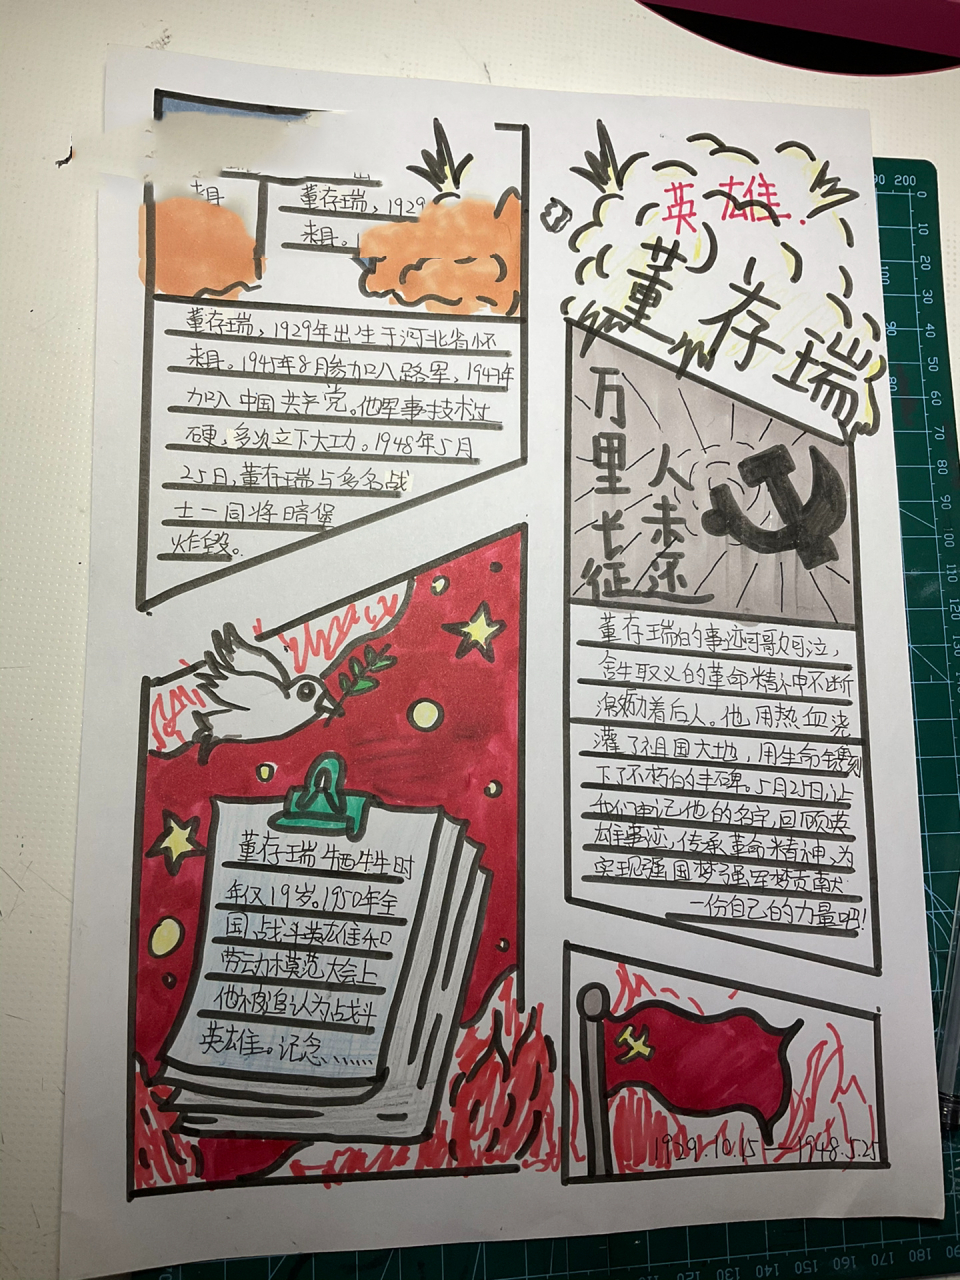 董存瑞，1929
来县。
县
董存瑞，1929年出生于河北省怀
来县。1945年8月参加八路军，1947年
加入中国共产党。他军事技术过
硬，多次立下大功。1948年5月
25日，董存瑞与多名战
士一同将暗堡
炸毁。
董存瑞牺牲时
年仅19岁。1950年全
国战斗英雄和
劳动模范大会上
他被追认为战斗
英雄。记念......
英雄.
董存瑞
万里长征
人未还
董存瑞的事迹可歌可泣，
舍生取义的革命精神不断
激励着后人。他用热血浇
灌了祖国大地，用生命镌刻
下了不朽的丰碑。5月25日，让
我们牢记他的名字，回顾英
雄事迹，传承革命精神，为
实现强国梦强军梦贡献
一份自己的力量吧！
1929.10.15—1948.5.25